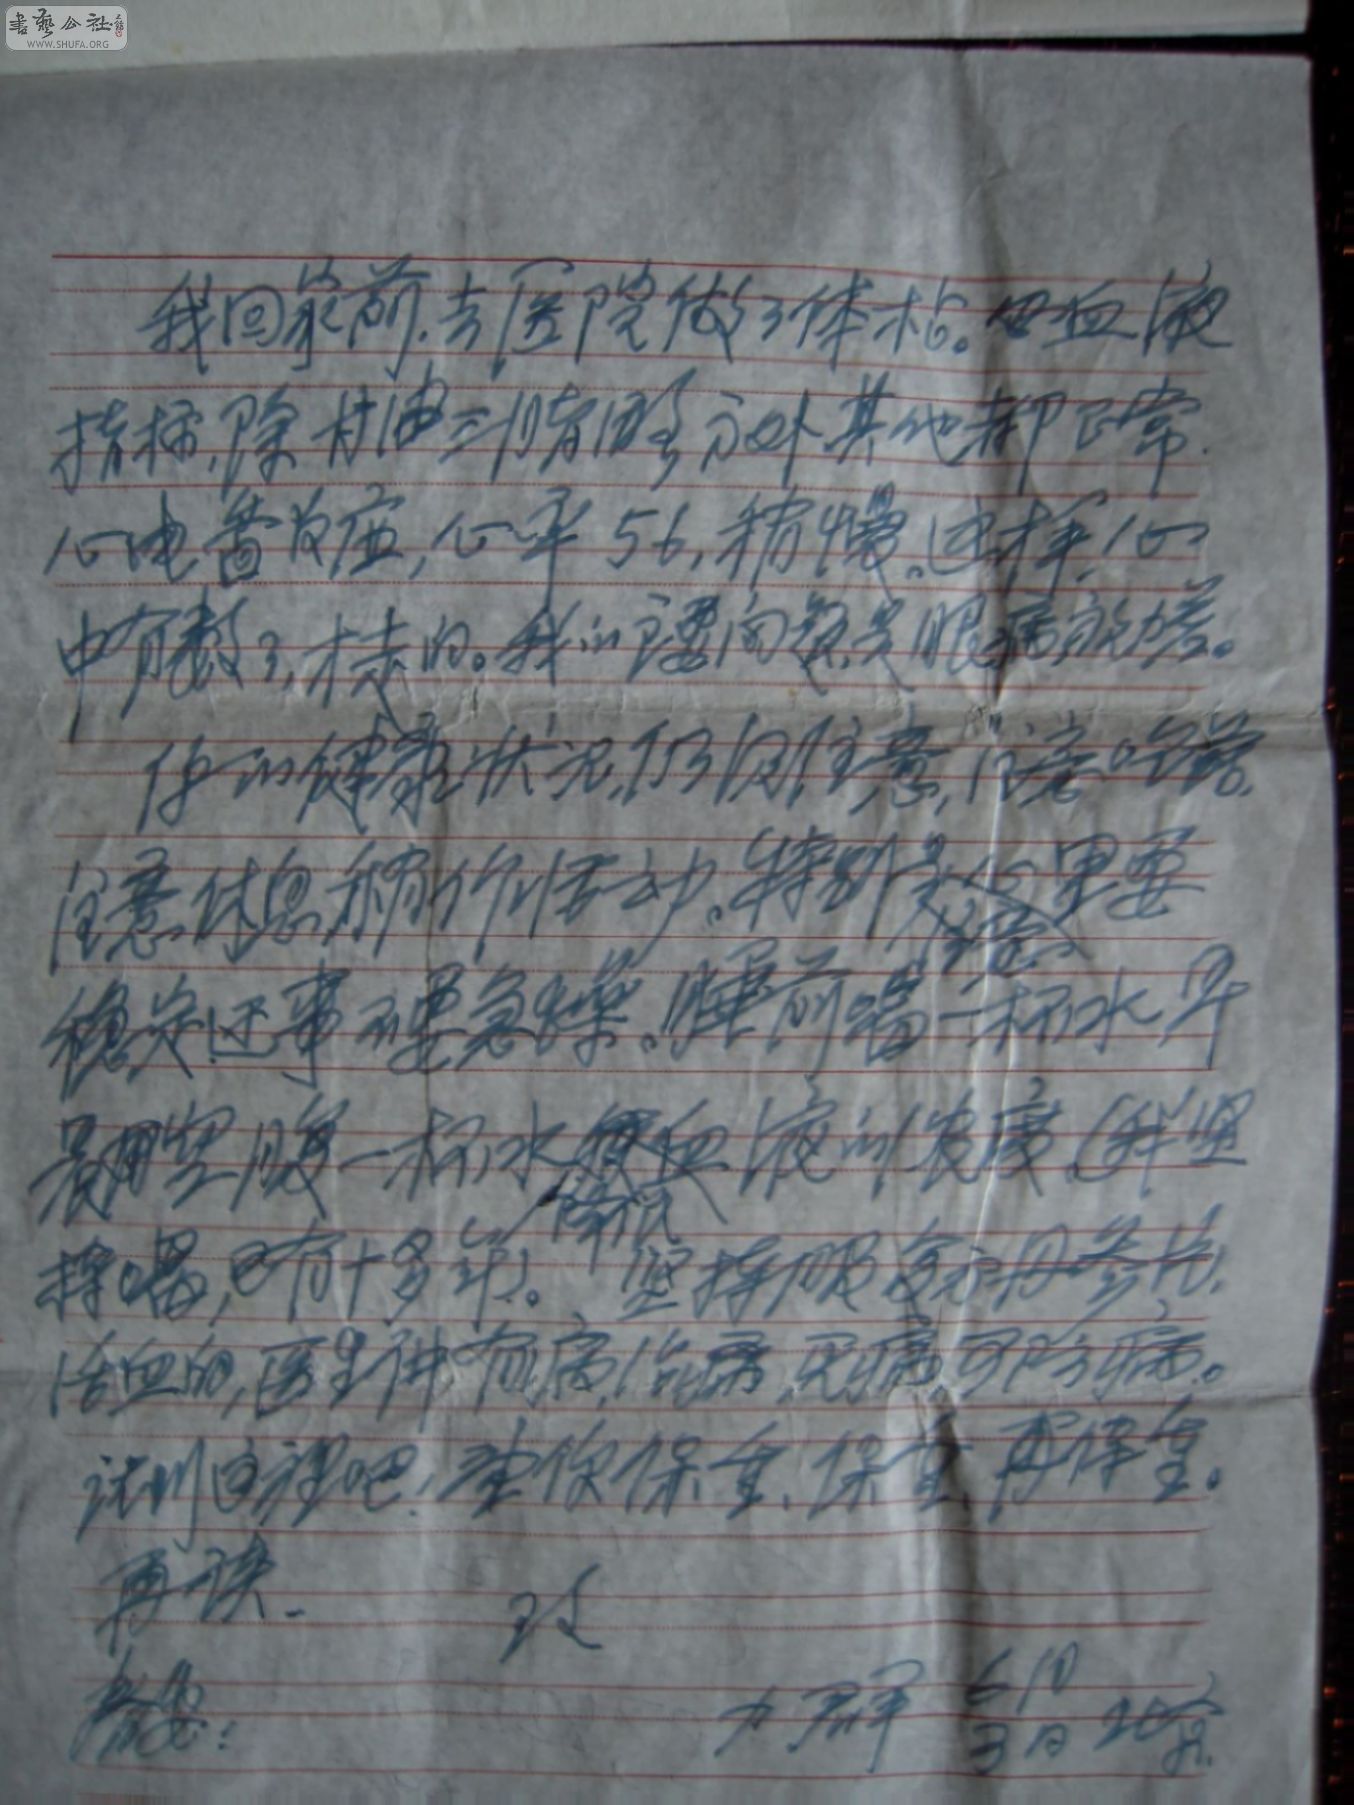 書藝公社
WWW.SHUFA.ORG
我回家前,去医院做了体检。血液
指标,除甘油三脂略高外其他都正常.
心电图为症,心率56,稍慢。这样,心
中有数了,才走的。我的主要问题是眼病
你的健康状况,仍须注意,注意吃药,
注意休息稍作活动。特别是心里要
稳定遇事不要急燥。睡前喝一杯水早
晨用空腹一杯水降低血液的浓度(我坚
持喝,已有十多年)。坚持服复方丹参片,
活血的,医生讲有病治病,无病可防病。
计划回程吧!望你保重、保重、再保重。
再谈.
致
春安!
力群 6月3日北京